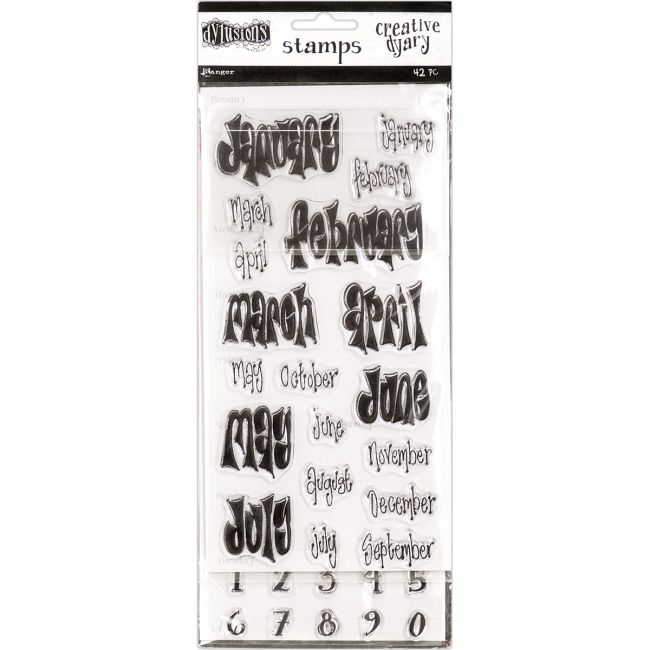 dylusions
stamps
creative
dyary
Ranger
42 PC
Monday
january
january
february
march
february
april
march
april
may
october
june
may
june
november
august
december
july
july
september
Tuesday
1 2 3 4 5
6 7 8 9 0